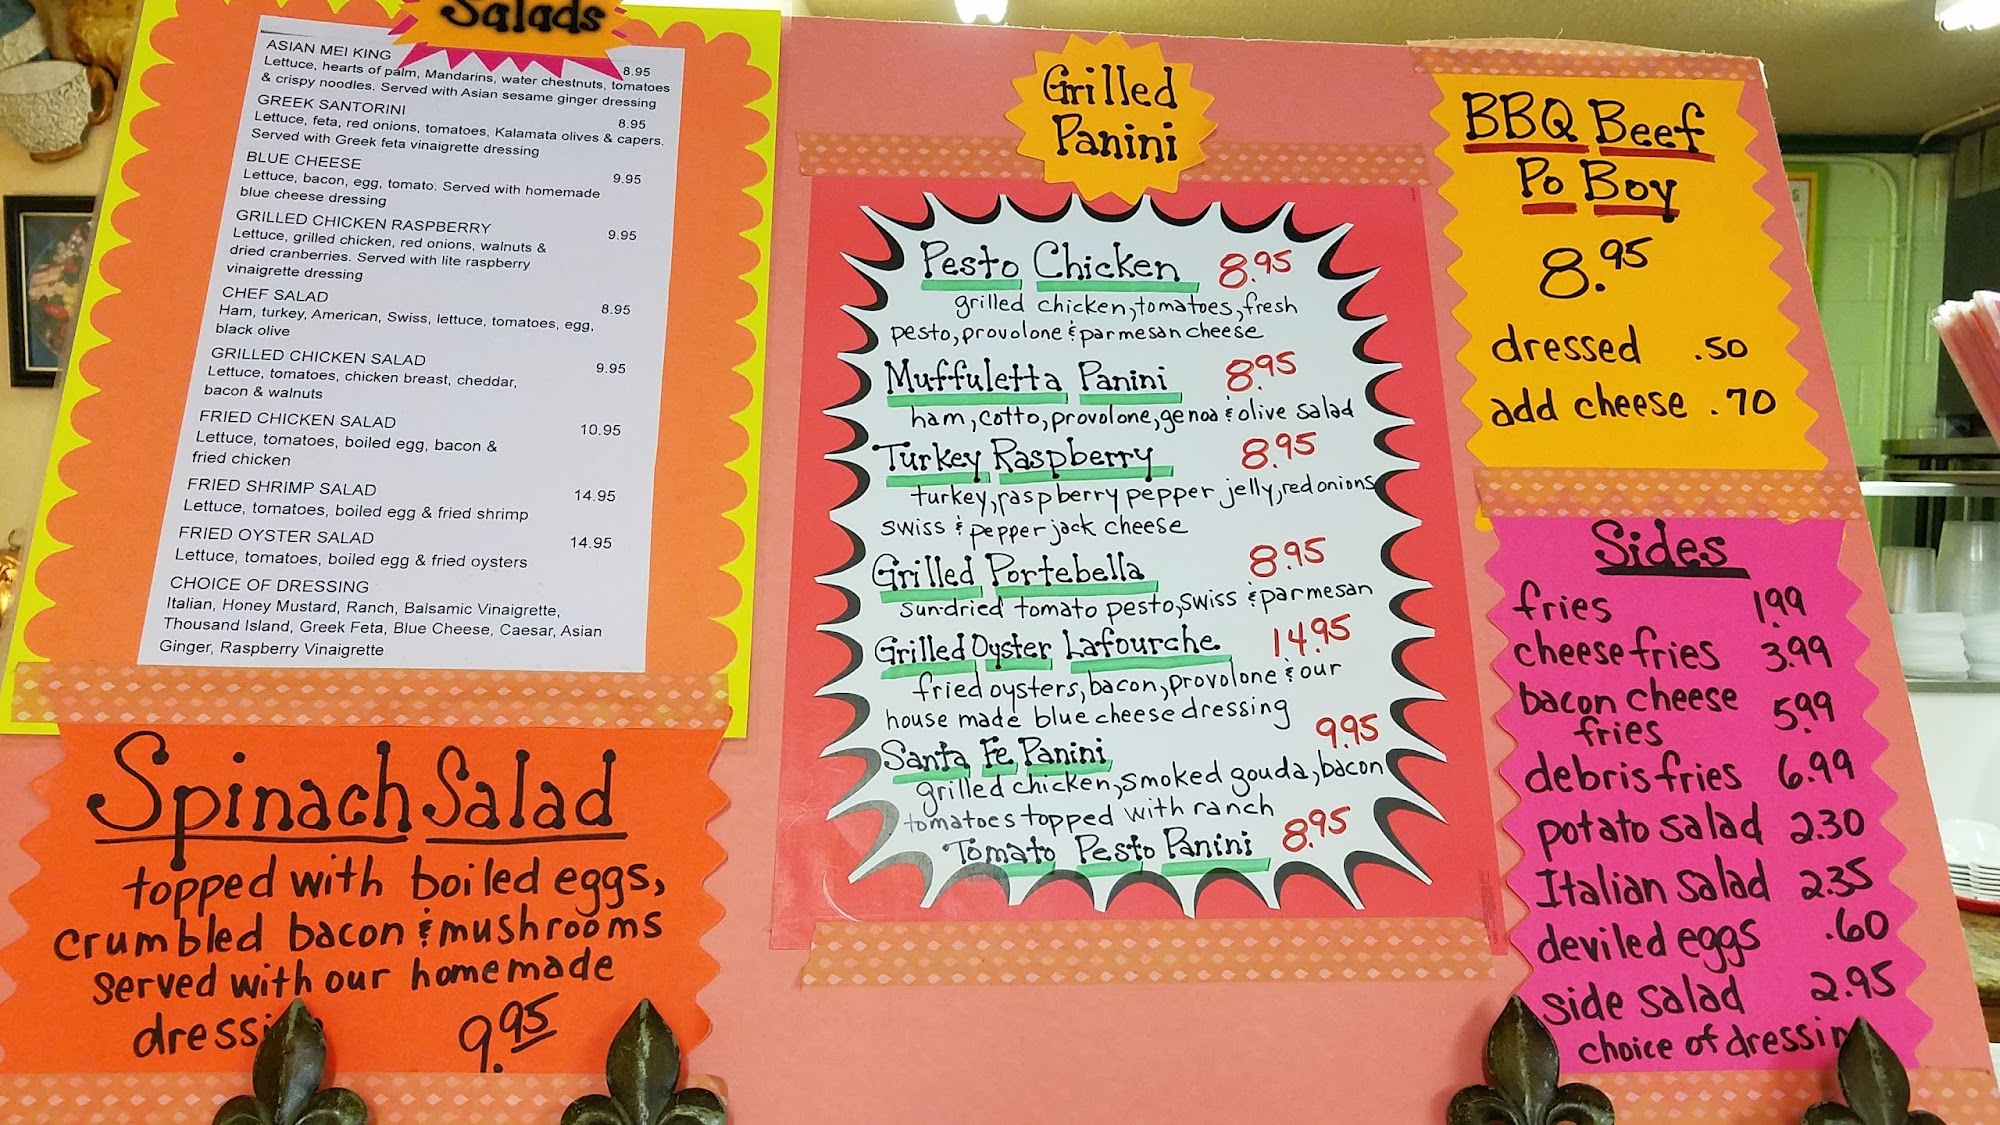 Salads
ASIAN MEI KING 8.95
Lettuce, hearts of palm, Mandarins, water chestnuts, tomatoes
& crispy noodles. Served with Asian sesame ginger dressing
GREEK SANTORINI 8.95
Lettuce, feta, red onions, tomatoes, Kalamata olives & capers.
Served with Greek feta vinaigrette dressing
BLUE CHEESE 9.95
Lettuce, bacon, egg, tomato. Served with homemade
blue cheese dressing
GRILLED CHICKEN RASPBERRY 9.95
Lettuce, grilled chicken, red onions, walnuts &
dried cranberries. Served with lite raspberry
vinaigrette dressing
CHEF SALAD 8.95
Ham, turkey, American, Swiss, lettuce, tomatoes, egg,
black olive
GRILLED CHICKEN SALAD 9.95
Lettuce, tomatoes, chicken breast, cheddar,
bacon & walnuts
FRIED CHICKEN SALAD 10.95
Lettuce, tomatoes, boiled egg, bacon &
fried chicken
FRIED SHRIMP SALAD 14.95
Lettuce, tomatoes, boiled egg & fried shrimp
FRIED OYSTER SALAD 14.95
Lettuce, tomatoes, boiled egg & fried oysters
CHOICE OF DRESSING
Italian, Honey Mustard, Ranch, Balsamic Vinaigrette,
Thousand Island, Greek Feta, Blue Cheese, Caesar, Asian
Ginger, Raspberry Vinaigrette
Spinach Salad
topped with boiled eggs,
crumbled bacon & mushrooms
served with our homemade
dressi 9.95
Grilled
Panini
Pesto Chicken 8.95
grilled chicken, tomatoes, fresh
pesto, provolone & parmesan cheese
Muffuletta Panini 8.95
ham, cotto, provolone, genoa & olive salad
Turkey Raspberry 8.95
turkey, raspberry pepper jelly, red onions
swiss & pepper jack cheese
Grilled Portebella 8.95
sun-dried tomato pesto, swiss & parmesan
Grilled Oyster Lafourche 14.95
fried oysters, bacon, provolone & our
house made blue cheese dressing
Santa Fe Panini 9.95
grilled chicken, smoked gouda, bacon
tomatoes topped with ranch
Tomato Pesto Panini 8.95
BBQ Beef
Po Boy
8.95
dressed .50
add cheese .70
Sides
fries 1.99
cheese fries 3.99
bacon cheese
fries 5.99
debris fries 6.99
potato salad 2.30
Italian salad 2.35
deviled eggs .60
side salad 2.95
choice of dressin